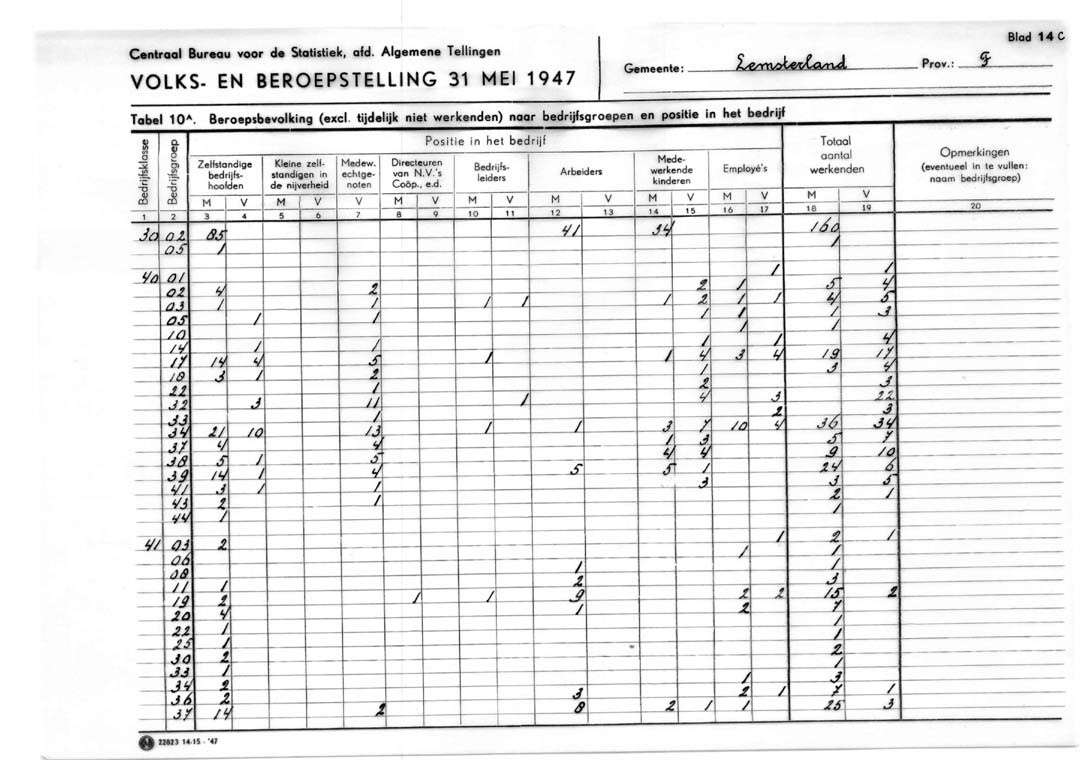 Blad 14 C
Centraal Bureau voor de Statistiek, afd. Algemene Tellingen
VOLKS- EN BEROEPSTELLING 31 MEI 1947
Gemeente: Lemsterland Prov.: F
Tabel 10A. Beroepsbevolking (excl. tijdelijk niet werkenden) naar bedrijfsgroepen en positie in het bedrijf
Bedrijfsklasse Bedrijfsgroep Positie in het bedrijf Totaal aantal werkenden Opmerkingen (eventueel in te vullen: naam bedrijfsgroep)
Zelfstandige bedrijfs-hoofden Kleine zelf-standigen in de nijverheid Medew. echtge-noten Directeuren van N.V.'s Coöp., e.d. Bedrijfs-leiders Arbeiders Mede-werkende kinderen Employé's
M V M V V M V M V M V M V M V M V
1 2 3 4 5 6 7 8 9 10 11 12 13 14 15 16 17 18 19 20
30 02 85 41 34 160
05 1 1
40 01 1 1
02 4 2 2 1 5 4
03 1 1 1 1 1 2 1 1 4 5
05 1 1 1 1 1 3
10 1 1
14 1 1 1 1 4
17 14 4 5 1 1 4 3 4 19 17
18 3 1 2 1 3 4
22 1 2 3
32 3 11 1 4 3 22
33 2 3
34 21 10 13 1 1 3 7 10 4 36 34
37 4 4 1 3 5 7
38 5 1 5 4 4 9 10
39 14 1 4 5 5 1 24 6
41 3 1 1 3 3 5
43 2 1 2 1
44 1 1
41 03 2 1 2 1
06 1 1
08 1 1
11 1 2 3
19 2 1 1 9 2 2 15 2
20 4 1 2 7
22 1 1
25 1 1
30 2 2
33 1 1
34 2 1 3
36 2 3 2 1 7 1
37 14 2 8 2 1 1 25 3
22023 14-15 - '47